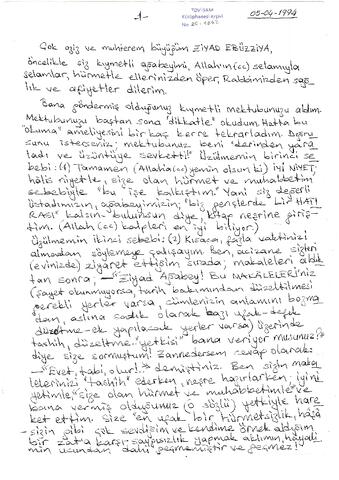 -1-
TDV İSAM
Kütüphanesi Arşivi
No
05-04-1994
Çok aziz ve muhterem büyüğüm ZİYAD EBÜZZİYA,
öncelikle siz kıymetli ağabeyimi, Allah'ın (cc) selamıyla
selamlar, hürmetle ellerinizden öper, Rabbimizden sağ-
lık ve afiyetler dilerim.
Bana göndermiş olduğunuz kıymetli mektubunuzu aldım.
Mektubunuzu baştan sona "dikkatle" okudum. Hatta bu
"okuma" ameliyesini bir kaç kerre tekrarladım. Doğru
sunu isterseniz; mektubunuz beni "derinden yara
ladı ve üzüntüye sevketti!" Üzülmemin birinci se
bebi: (1) Tamamen (Allah'a (cc) yemin olsun ki) İYİ NİYET,
hâlis niyetle, size olan hürmet ve muhabbetim
sebebiyle "bu işe kalkıştım." Yani siz değerli
üstadımızın, ağabeyimizin; "biz gençlerde" bir HATI
RASI" kalsın - bulunsun diye, kitap neşrine giriş-
tim. (Allah (cc) kalpleri en iyi biliyor.)
Üzülmemin ikinci sebebi: (2) Kısaca, fazla vaktinizi
almadan söylemeye çalışayım ben, acizane sizleri
(evinizde) ziyaret ettiğim sırada; makaleleri aldık
tan sonra; — "Ziyad Ağabey! Bu MAKÂLELERİ'niz
(şayet okunmuyorsa, tarih bakımından düzeltilmesi
gerekli yerler varsa, cümlenizin anlamını bozma
dan, aslına sadık olarak bazı ufak-tefek
düzeltme-ek yapılacak yerler varsa) üzerinde
tashih, düzeltme "yetkisi" bana veriyor musunuz?"
diye size sormuştum! Zannedersem cevap olarak:
— "Evet, tabi, olur!." demiştiniz. Ben sizin maka
lelerinizi "tashih" ederken, neşre hazırlarken; iyini
yetimle, "size olan hürmet ve muhabbetimle ve
bana vermiş olduğunuz (o sözlü) yetkiyle hare
ket ettim. Size "en ufak" bir hürmetsizlik, hâşâ
sizin gibi çok sevdiğim ve kendime örnek aldığım
bir zat'a karşı saygısızlık yapmak aklımın, hayali
min ucundan dahi geçmemiştir ve geçmez!